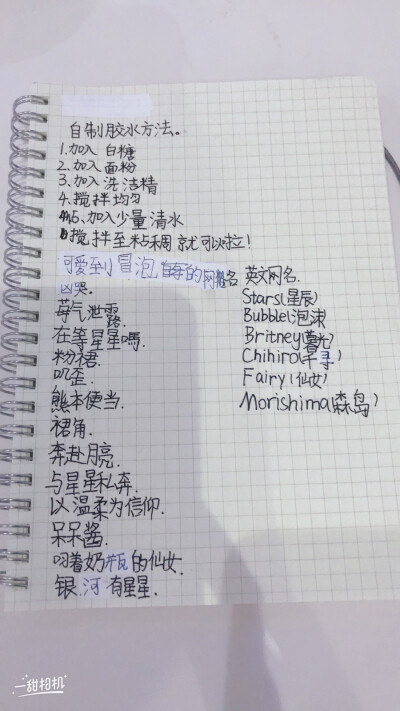 自制胶水方法。
1.加入 白糖
2.加入 面粉
3.加入 洗洁精
4.搅拌均匀
5.加入少量清水
搅拌至粘稠就可以啦!
可爱到冒泡 的网名
凶哭.
莓气泄露.
在等星星嗎.
粉裙.
叽歪.
熊本便当.
裙角.
奔赴月亮.
与星星私奔.
以温柔为信仰.
呆呆酱.
叼着奶瓶的仙女.
银河有星星.
英文网名.
Stars(星辰)
Bubble(泡沫)
Britney(
Chihiro(千寻)
Fairy(仙女)
Morishima(森岛)
一甜相机